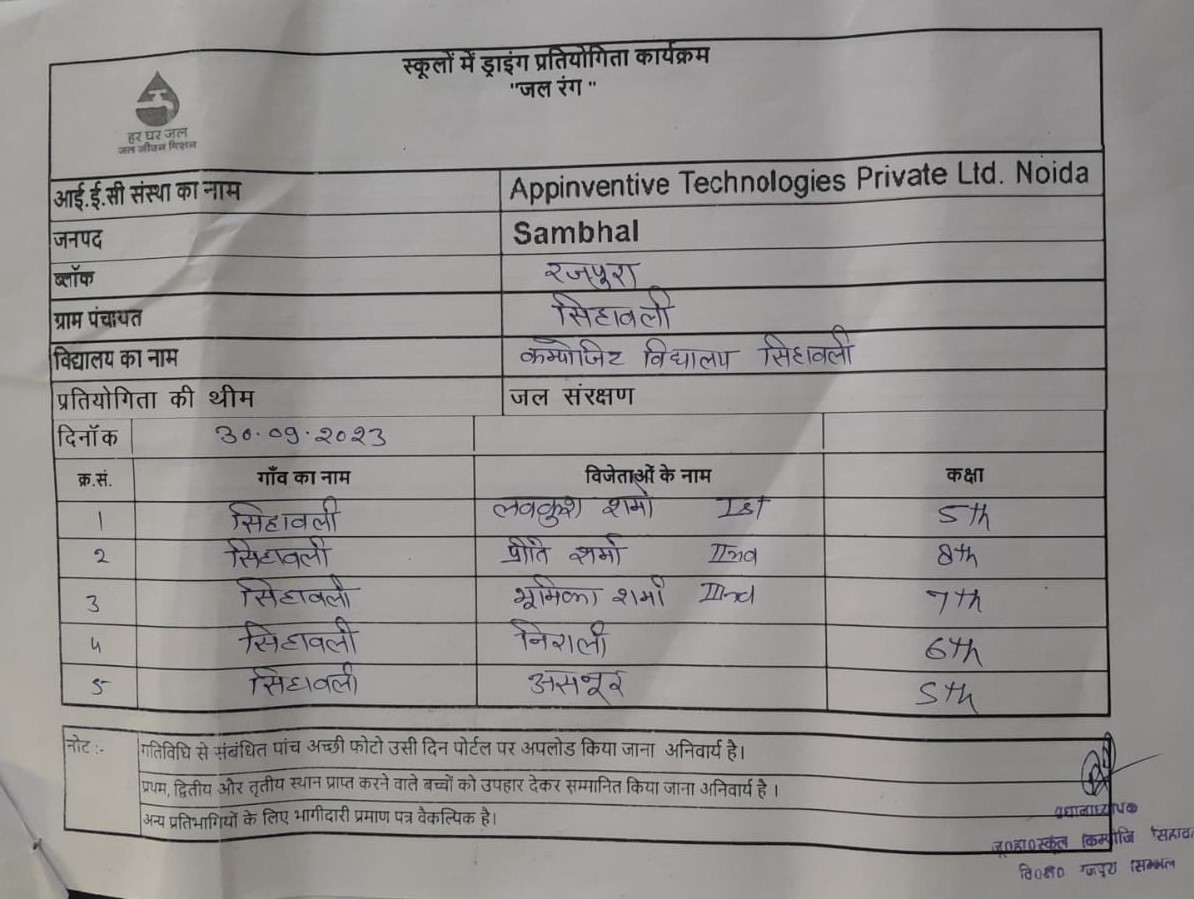 स्कूलों में ड्राइंग प्रतियोगिता कार्यक्रम
"जल रंग "
हर घर जल
जल जीवन मिशन
आई.ई.सी संस्था का नाम Appinventive Technologies Private Ltd. Noida
जनपद Sambhal
ब्लॉक रजपुरा
ग्राम पंचायत सिहावली
विद्यालय का नाम कम्पोजिट विद्यालय सिहावली
प्रतियोगिता की थीम जल संरक्षण
दिनॉक 30.09.2023
क्र.सं. गाँव का नाम विजेताओं के नाम कक्षा
1 सिहावली लवकुश शर्मा Ist 5th
2 सिहावली प्रीति शर्मा IInd 8th
3 सिहावली भूमिका शर्मा IIInd 7th
4 सिहावली निराली 6th
5 सिहावली असनूर 5th
नोट :- गतिविधि से संबंधित पांच अच्छी फोटो उसी दिन पोर्टल पर अपलोड किया जाना अनिवार्य है।
प्रथम, द्वितीय और तृतीय स्थान प्राप्त करने वाले बच्चों को उपहार देकर सम्मानित किया जाना अनिवार्य है ।
अन्य प्रतिभागियों के लिए भागीदारी प्रमाण पत्र वैकल्पिक है।
प्रधानाध्यापक
जू०हा०स्कूल